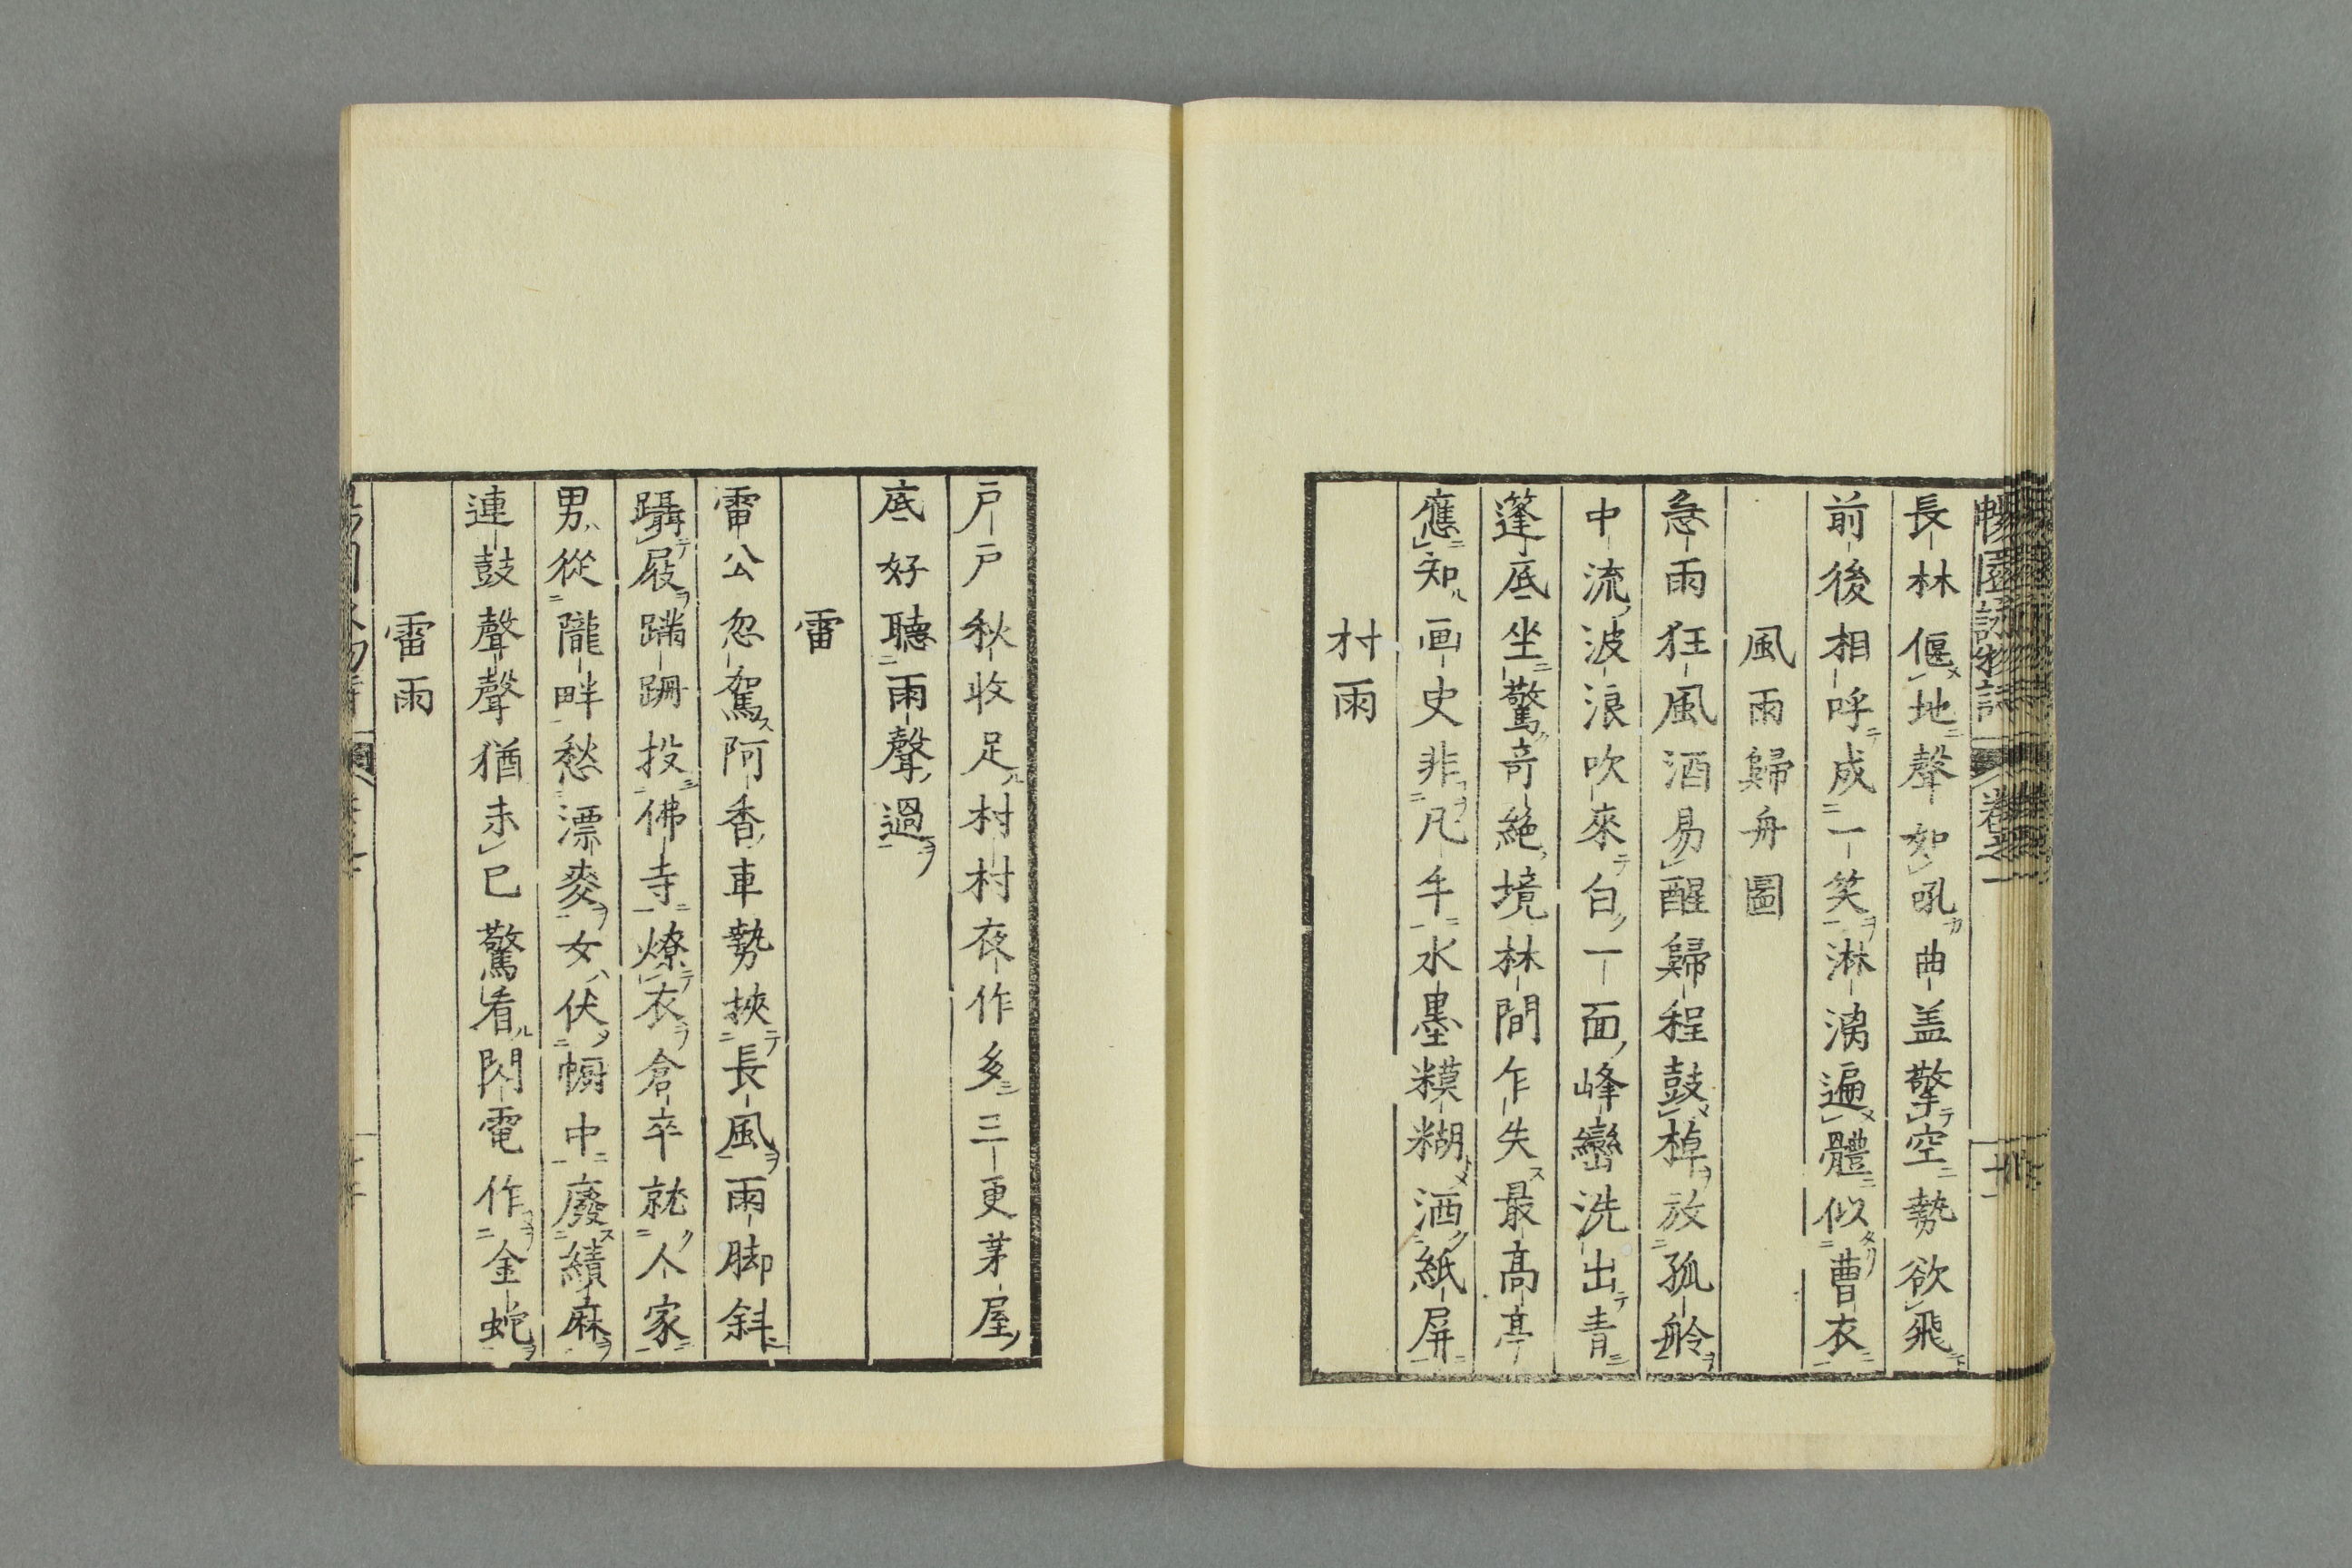 長林偃地聲如吼曲盖擎空勢欲飛
前後相呼成一笑淋漓遍體似曹衣
風雨歸舟圖
急雨狂風酒易醒歸程鼓棹放孤舲
中流波浪吹來白一面峰巒洗出青
篷底坐驚奇絶境林間乍失最高亭
應知画史非凡手水墨糢糊洒紙屏
村雨
戸戸秋收足村村夜作多三更茅屋
底好聽雨聲過
雷
雷公忽駕阿香車勢挾長風雨脚斜
躡屐蹣跚投佛寺燎衣倉卒就人家
男從隴畔愁漂麥女伏幮中廢績麻
連鼓聲聲猶未已驚看閃電作金蛇
雷雨